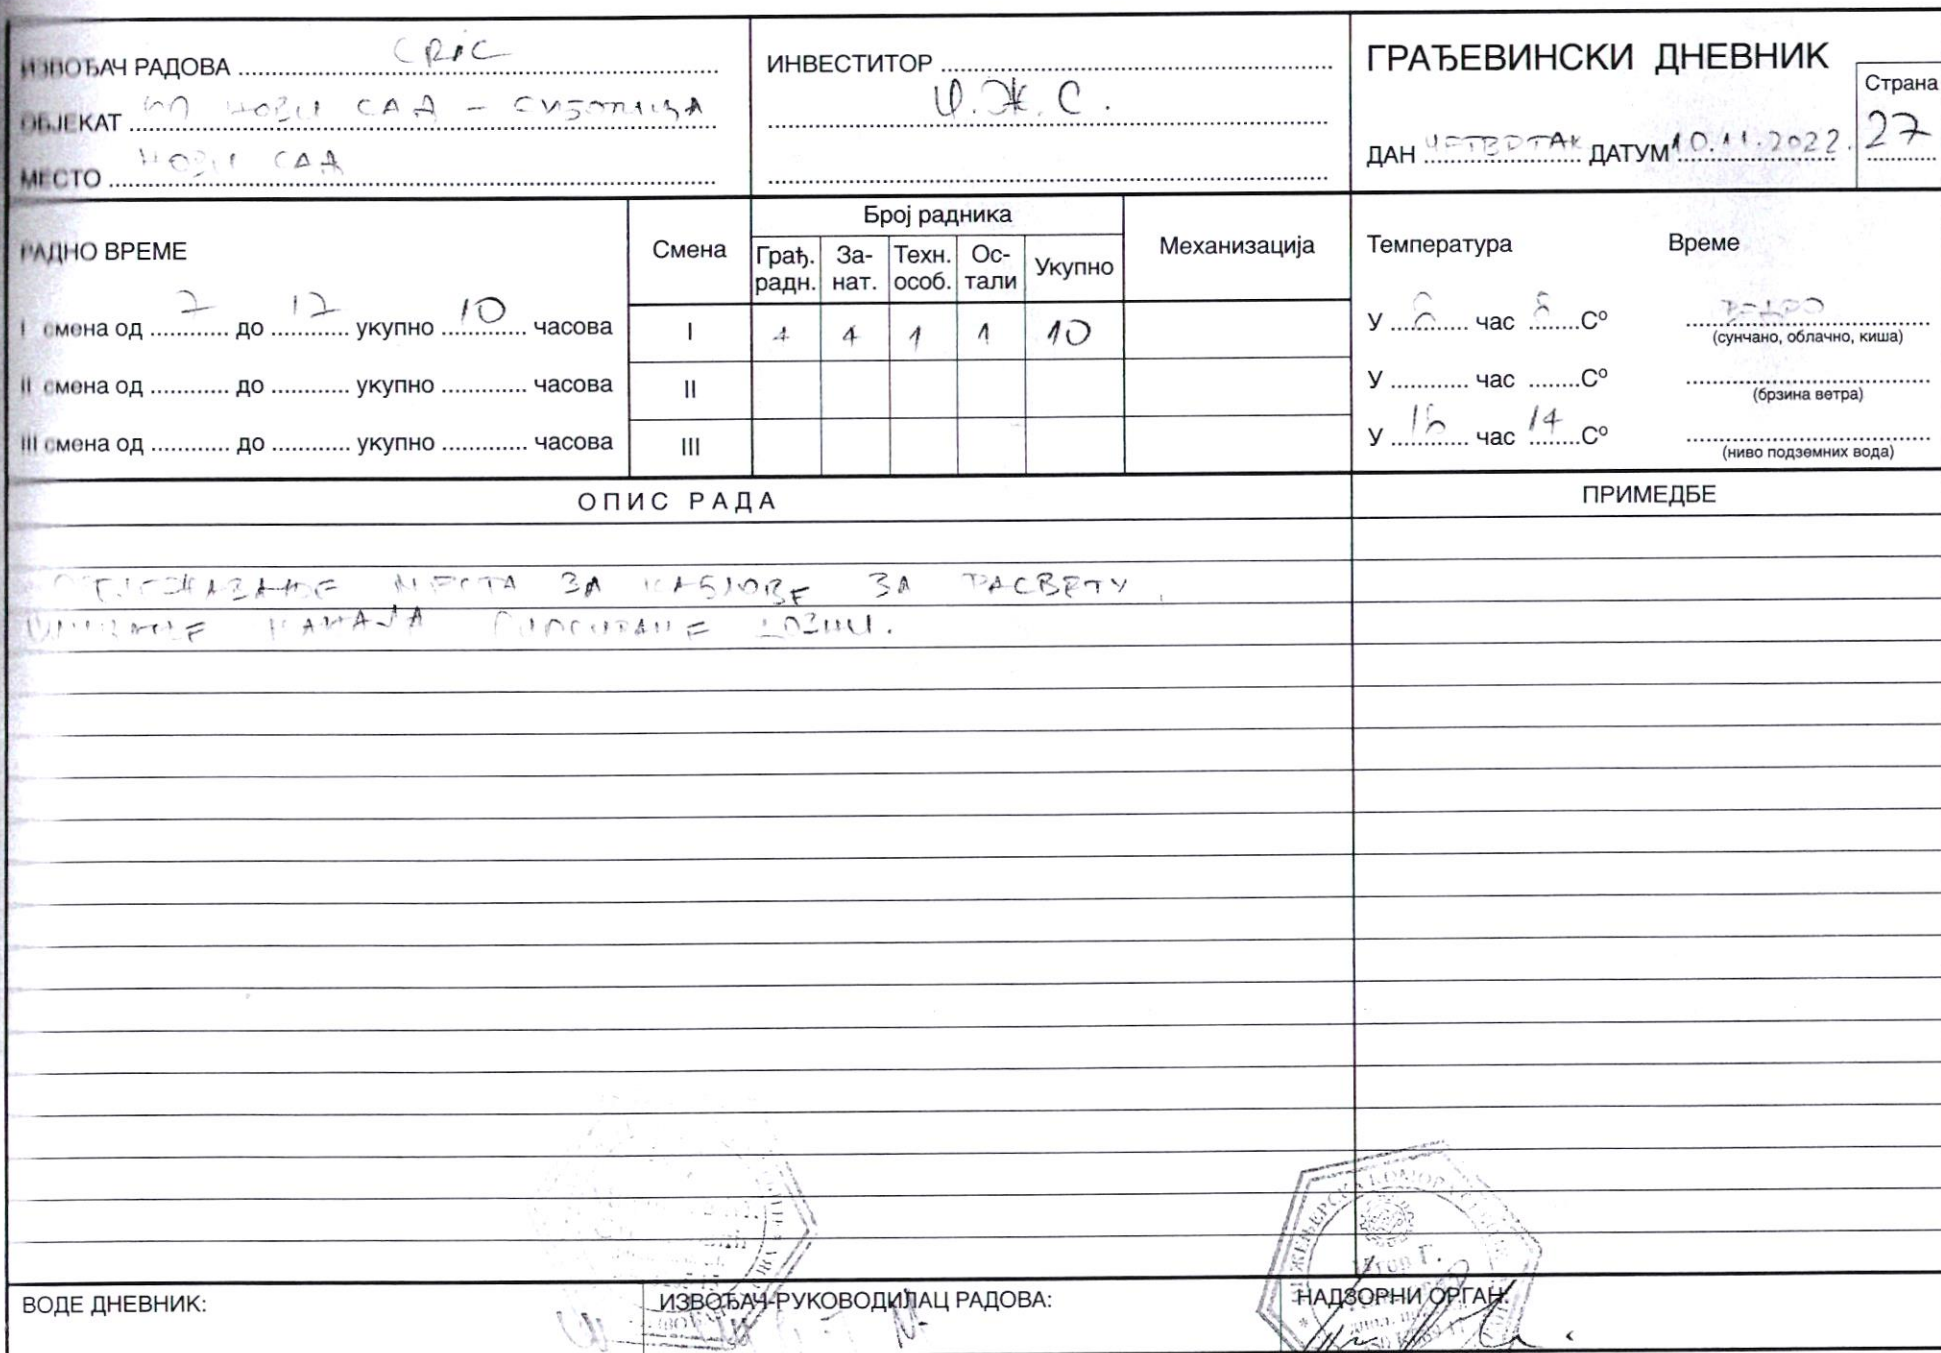 ИЗВОЂАЧ РАДОВА CRIC
ОБЈЕКАТ НОВИ САД - СУБОТИЦА
МЕСТО НОВИ САД
ИНВЕСТИТОР
И.Ж.С.
ГРАЂЕВИНСКИ ДНЕВНИК
Страна
27
ДАН ЧЕТВРТАК ДАТУМ 10.11.2022.
РАДНО ВРЕМЕ
I смена од 7 до 17 укупно 10 часова
II смена од до укупно часова
III смена од до укупно часова
Смена
Број радника
Грађ. радн.
За-нат.
Техн. особ.
Ос-тали
Укупно
Механизација
I 4 4 1 1 10
II
III
Температура Време
У 8 час 8 С° ВЕДРО
(сунчано, облачно, киша)
У час С°
(брзина ветра)
У 16 час 14 С°
(ниво подземних вода)
ОПИС РАДА
ПРИМЕДБЕ
МЕСТА ЗА КАБЛОВЕ ЗА РАСВЕТУ,
КАНАЛА
ВОДЕ ДНЕВНИК:
ИЗВОЂАЧ-РУКОВОДИЛАЦ РАДОВА:
НАДЗОРНИ ОРГАН: